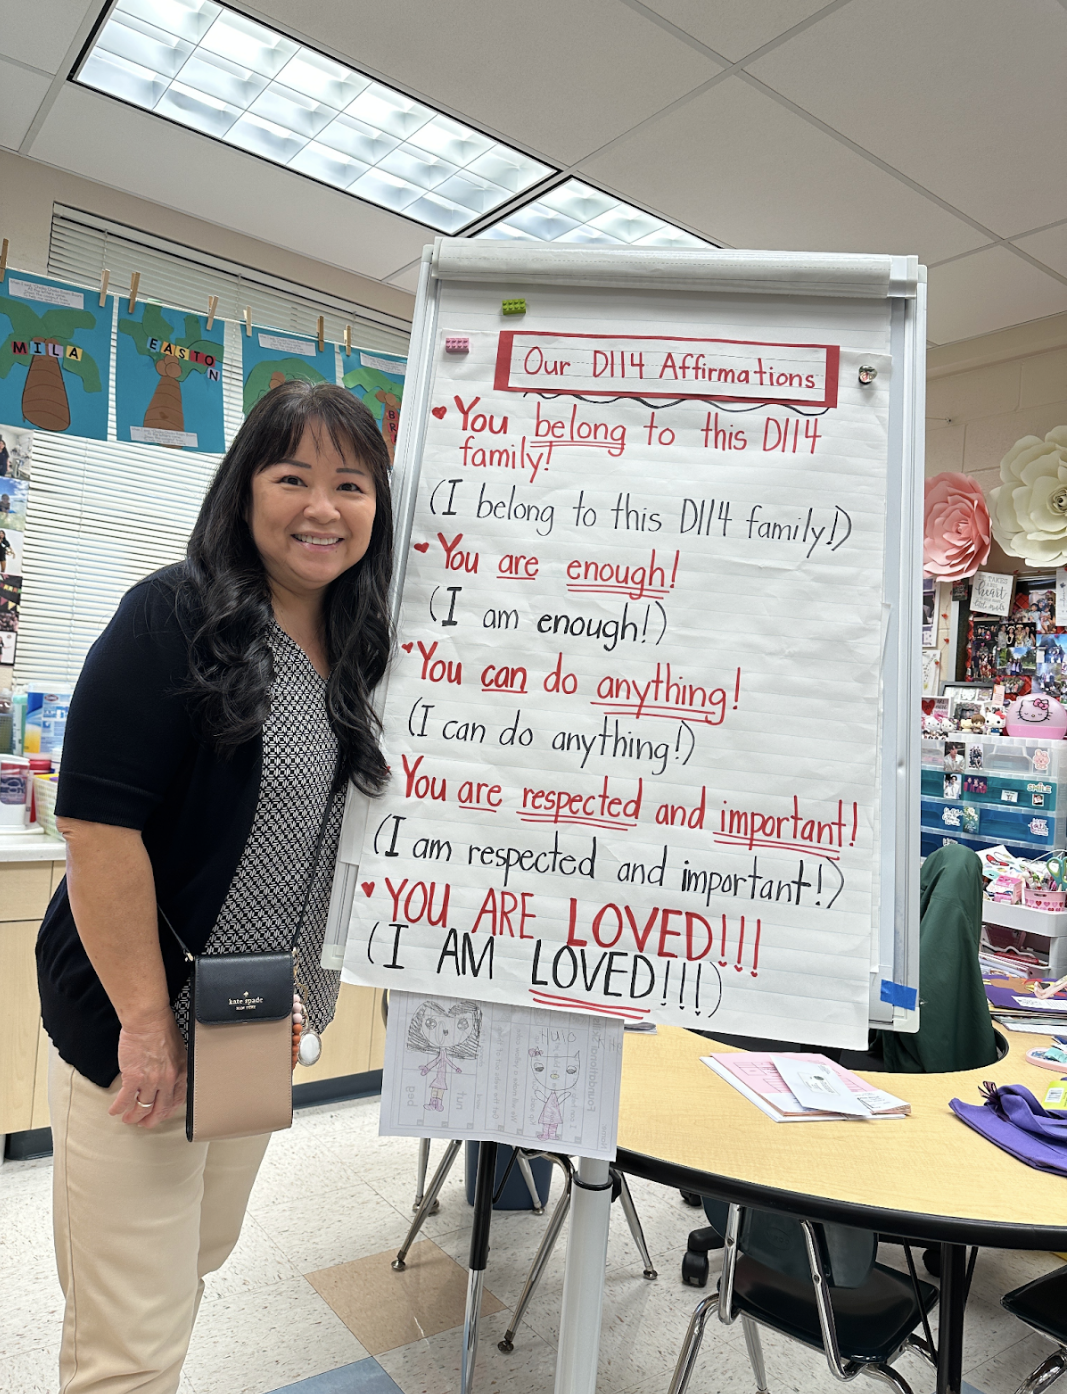 Our D114 Affirmations
You belong to this D114
family!
(I belong to this D114 family!)
You are enough!
(I am enough!)
You can do anything!
(I can do anything!)
You are respected and important!
(I am respected and important!)
YOU ARE LOVED!!!
(I AM LOVED!!!)
MILA
EASTON
kate spade
NEW YORK
heart